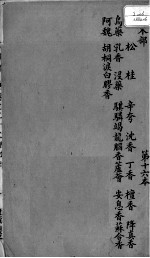 第十六本
木部
松 桂 辛夷 沈香 丁香 檀香 降真香
烏藥 乳香 沒藥 騏驎竭 龍腦香 蘆薈 安息香 蘇合香
阿魏 胡桐淚 白膠香